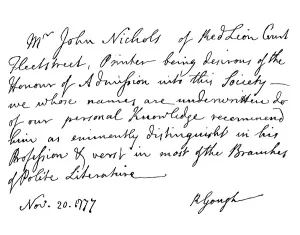 Mr John Nichols of Red Lion Court
Fleetstreet, Printer being desirous of the
Honour of Admission into this Society –
we whose names are underwritten do
of our personal Knowledge recommend
him as eminently distinguisht in his
Profession & verst in most of the Branches
of Polite Literature
Nov. 20. 1777 R Gough